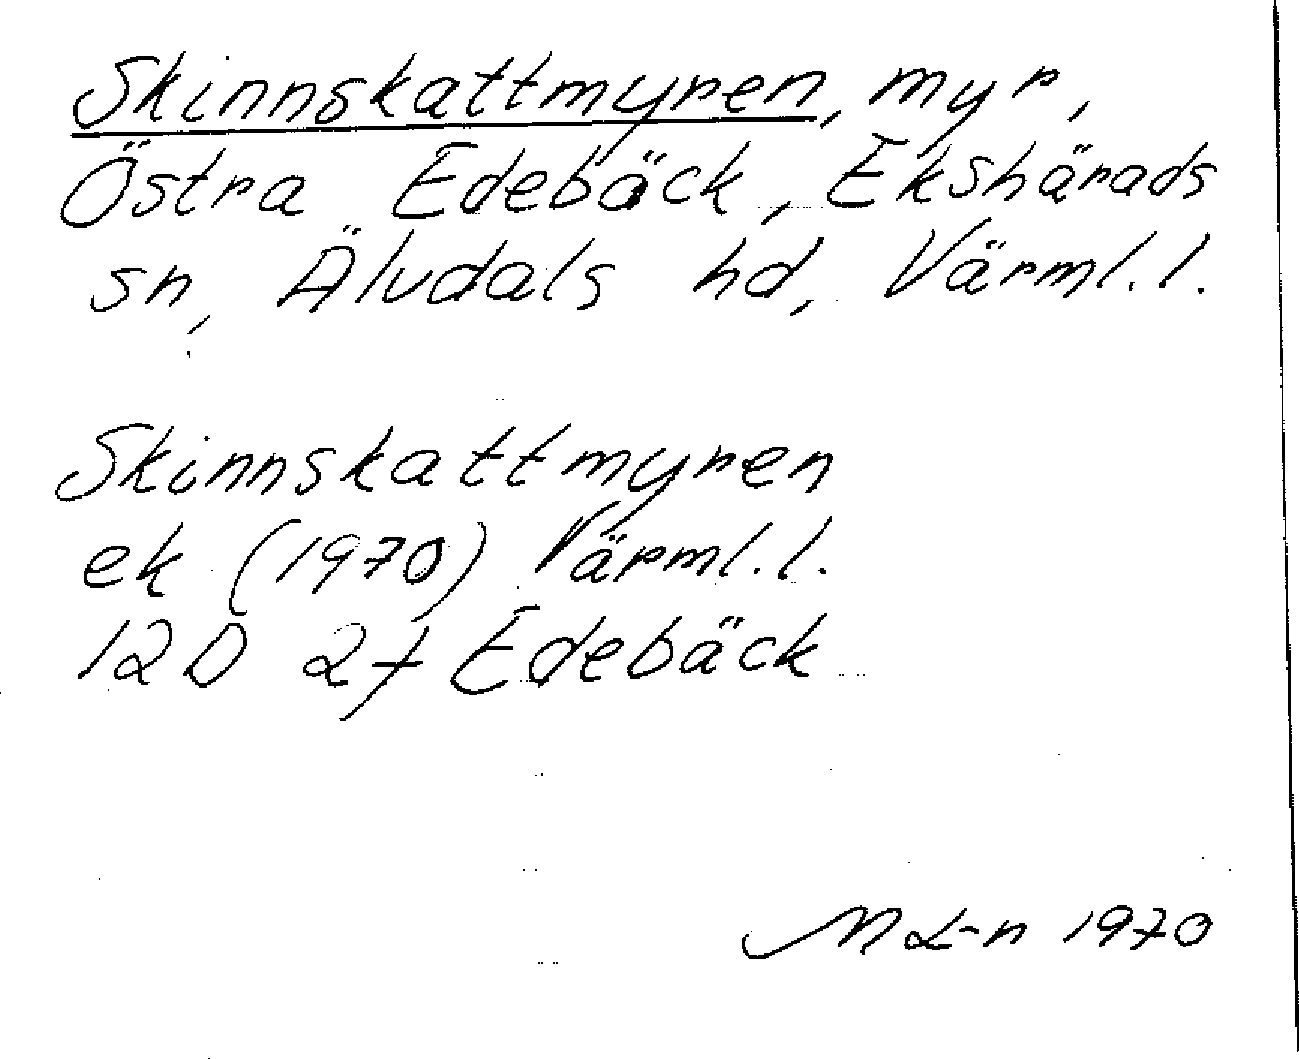 Skinnskattmyren, myr,
Östra Edebäck, Ekshärads
sn, Älvdals hd, Värml.l.
Skinnskattmyren
ek (1970) Värml.l.
12D 2f Edebäck
M L-n 1970